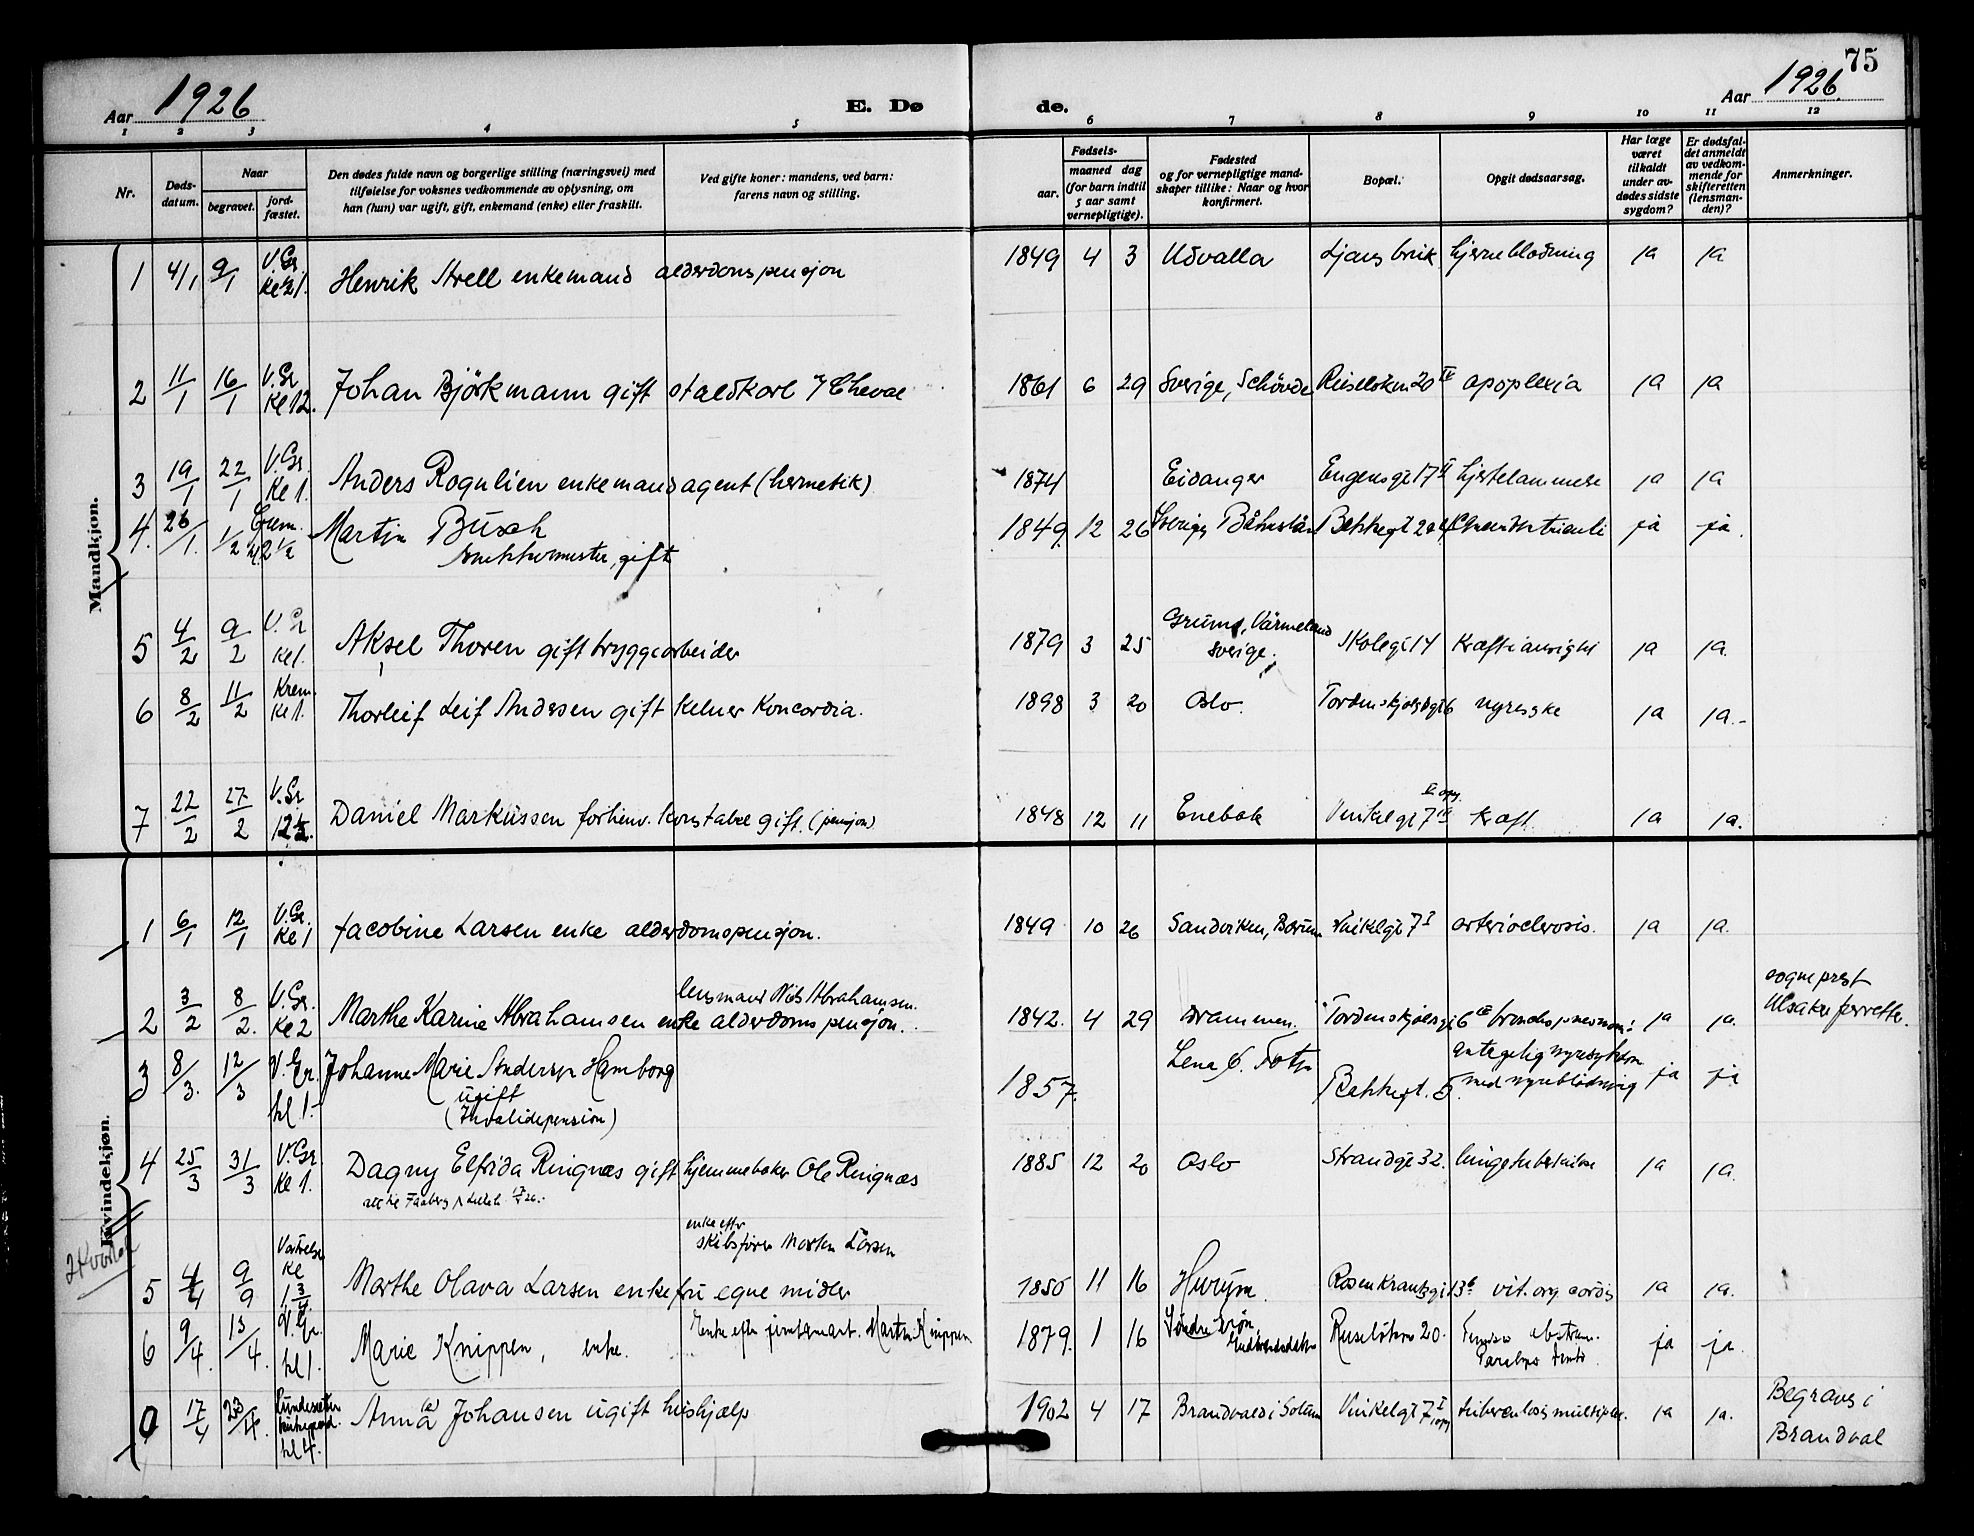 75
Aar 1926 E. Dø de. Aar 1926.
1 2 3 4 5 6 7 8 9 10 11 12
Nr. Døds-datum. Naar begravet. jord-fæstet. Den dødes fulde navn og borgerlige stilling (næringsvei) med tilføielse for voksnes vedkommende av oplysning, om han (hun) var ugift, gift, enkemand (enke) eller fraskilt. Ved gifte koner: mandens, ved barn: farens navn og stilling. Fødsels- aar. maaned dag (for barn indtil 5 aar samt vernepligtige). Fødested og for vernepligtige mand-skaper tillike: Naar og hvor konfirmert. Bopæl. Opgit dødsaarsag. Har læge været tilkaldt under av-dødes sidste sygdom? Er dødsfal-det anmeldt av vedkom-mende for skifteretten (lensman-den)? Anmerkninger.
Mandkjøn.
1 4/1 9/1 V. Gr. Henrik Strell enkemand alderdomspensjon 1849 4 3 Udvalla Ljansbruk hjerneblødning ja ja
2 11/1 16/1 V. Gr. Kl 12. Johan Björkmann gift staldkarl Cheval 1861 6 29 Sverige, Schövde Ruseløkvn 20 IV apoplexia ja ja
3 19/1 22/1 V. Gr. Kl 1. Anders Rognlien enkemand agent (hermetik) 1874 Eidanger Engensgt 17 II hjertelammelse ja ja
4. 26/1. 1/2 Crem. kl. 2 1/2 Martin Busch 1849. 12 26 Sverige, Båhuslän Bakkegt ja ja.
snekkermester, gift
5 4/2 9/2 V. Gr Kl 1. Aksel Thoren gift bryggearbeider 1879 3 25 Grums, Värmeland Sverige. Skolegt 14 ja ja.
6 8/2 11/2 Krem. Kl 1. Thorleif Leif Andersen gift kelner Koncordia. 1898 3 20 Oslo. Tordenskjoldsgt 6 nyresyke ja ja.-
7 22/2 27/2 V. Gr 12 1/2. Daniel Markussen forhenv. konstabel gift. (pensjon) 1848 12 11 Enebak Vinkelgt 7 II opg. kræft ja ja.
Kvindekjøn.
1 6/1 12/1 V. Gr. Kl 1 Jacobine Larsen enke alderdomspensjon. 1849 10 26 Sandviken, Bærum Vinkelgt 7 I arteriosclerosis. ja ja.
2 3/2 8/2. V. Gr. Kl 2 Marthe Karine Abrahamsen enke alderdomspensjon. lensmand Nils Abrahamsen. 1842. 4 29 Drammen. Tordenskjoldsgt 6 III bronchopneumoni ja ja. sogneprest Ulsaker forrettet.
3 8/3. 12/3 V. Gr. kl 1.- Johanne Marie Andersen Hamborg 1857. Lena Ø. Toten Bakkegt. 5. antagelig nyresykdom med nyreblødning ja ja
ugift
(Invalidepension)
4 25/3 31/3 V. Gr. Kl 1. Dagny Elfrida Ringnæs gift hjemmebaker Ole Ringnæs 1885 12 20 Oslo Strandgt 32. lungetuberkulose ja ja.
5 4/4 9/9 Kl 1 3/4. Marthe Olava Larsen enkefru egne midler enke efter skibsfører Morten Larsen 1850 11 16 Hurum. Rosenkrantzgt 13 b vit. org. cordis ja ja.
6 9/4. 13/4. V. Gr. kl 1. Marie Knippen, enke. Enke efter Martin Knippen 1879. 1 16 Ruseløkvn 20. ja ja.
17/4 23/4. kl 4. Anna Johansen ugift hushjælp 1902 4 17 Brandval i Solør Vinkelgt 7 I opg tuberculosis multiplex. ja ja. Begraves i Brandval